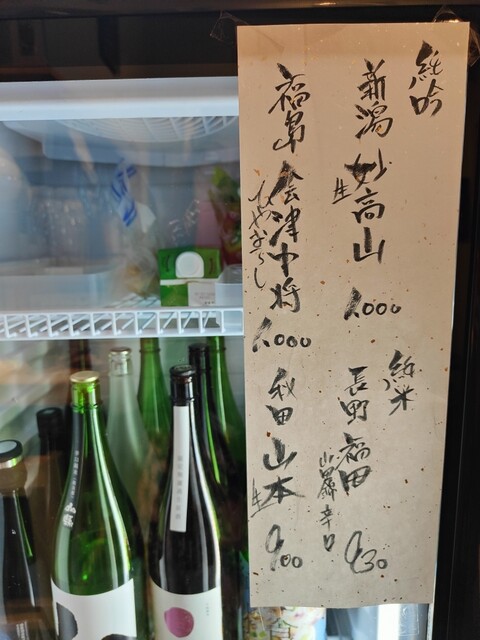 純吟
新潟 妙高山
生
1,000
福島 会津中将
ひやおろし
1,000
純米
長野 福田
山田錦 辛口
930
秋田 山本
生
900